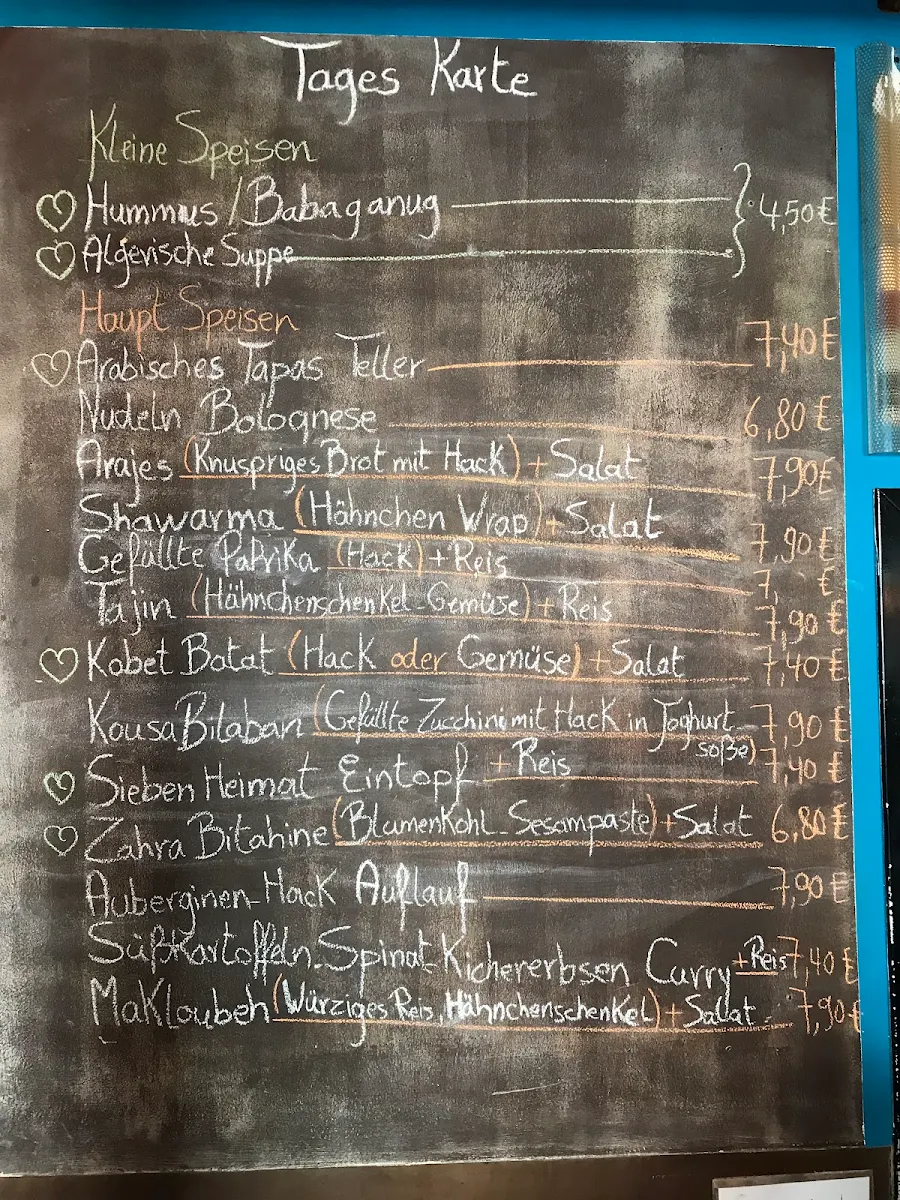 Tages Karte
Kleine Speisen
♡ Hummus / Babaganug 4,50€
♡ Algerische Suppe
Haupt Speisen
♡ Arabisches Tapas Teller 7,40€
Nudeln Bolognese 6,80€
Arajes (Knuspriges Brot mit Hack) + Salat 7,90€
Shawarma (Hähnchen Wrap) + Salat 7,90€
Gefüllte Paprika (Hack) + Reis 7, €
Tajin (Hähnchenschenkel-Gemüse) + Reis 7,90€
♡ Kobet Batat (Hack oder Gemüse) + Salat 7,40€
Kousa Bilaban (Gefüllte Zucchini mit Hack in Joghurt 7,90€
soße)
♡ Sieben Heimat Eintopf + Reis 7,40€
♡ Zahra Bitahine (Blumenkohl-Sesampaste) + Salat 6,80€
Auberginen-Hack Auflauf 7,90€
Süßkartoffeln-Spinat-Kichererbsen Curry + Reis 7,40€
Makloubeh (Würziges Reis, Hähnchenschenkel) + Salat 7,90€